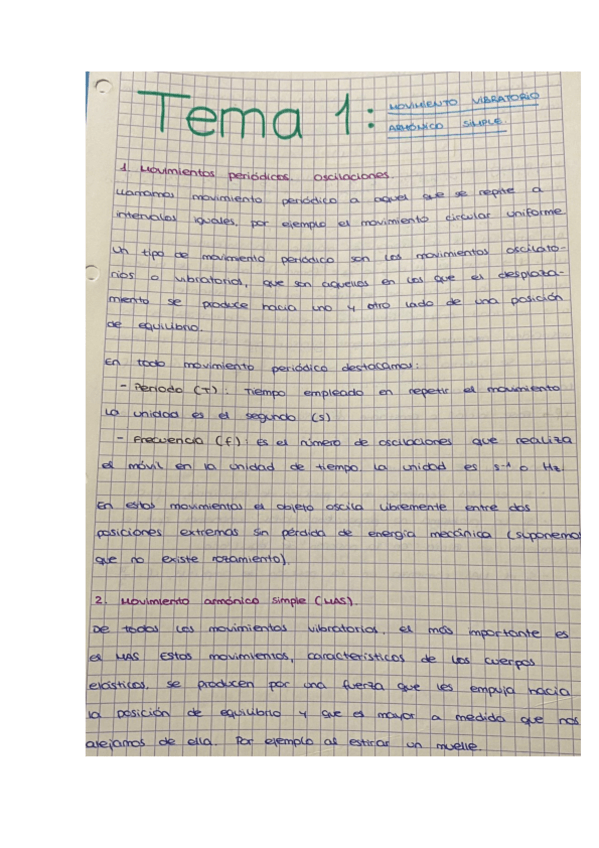 Tema 1: MOVIMIENTO VIBRATORIO
ARMÓNICO SIMPLE.
1. Movimientos periódicos. oscilaciones.
Llamamos movimiento periódico a aquel que se repite a
intervalos iguales, por ejemplo el movimiento circular uniforme.
Un tipo de movimiento periódico son los movimientos oscilato-
rios o vibratorios, que son aquellos en los que el desplaza-
miento se produce hacia uno y otro lado de una posición
de equilibrio.
En todo movimiento periódico destacamos:
- Periodo (T): Tiempo empleado en repetir el movimiento
La unidad es el segundo (s)
- Frecuencia (f): es el número de oscilaciones que realiza
el móvil en la unidad de tiempo La unidad es s-1 o Hz.
En estos movimientos el objeto oscila libremente entre dos
posiciones extremas sin pérdida de energía mecánica (suponemos
que no existe rozamiento).
2. Movimiento armónico simple (MAS).
De todos los movimientos vibratorios, el más importante es
el MAS Estos movimientos, característicos de los cuerpos
elásticos, se producen por una fuerza que les empuja hacia
la posición de equilibrio y que es mayor a medida que nos
alejamos de ella. Por ejemplo al estirar un muelle.